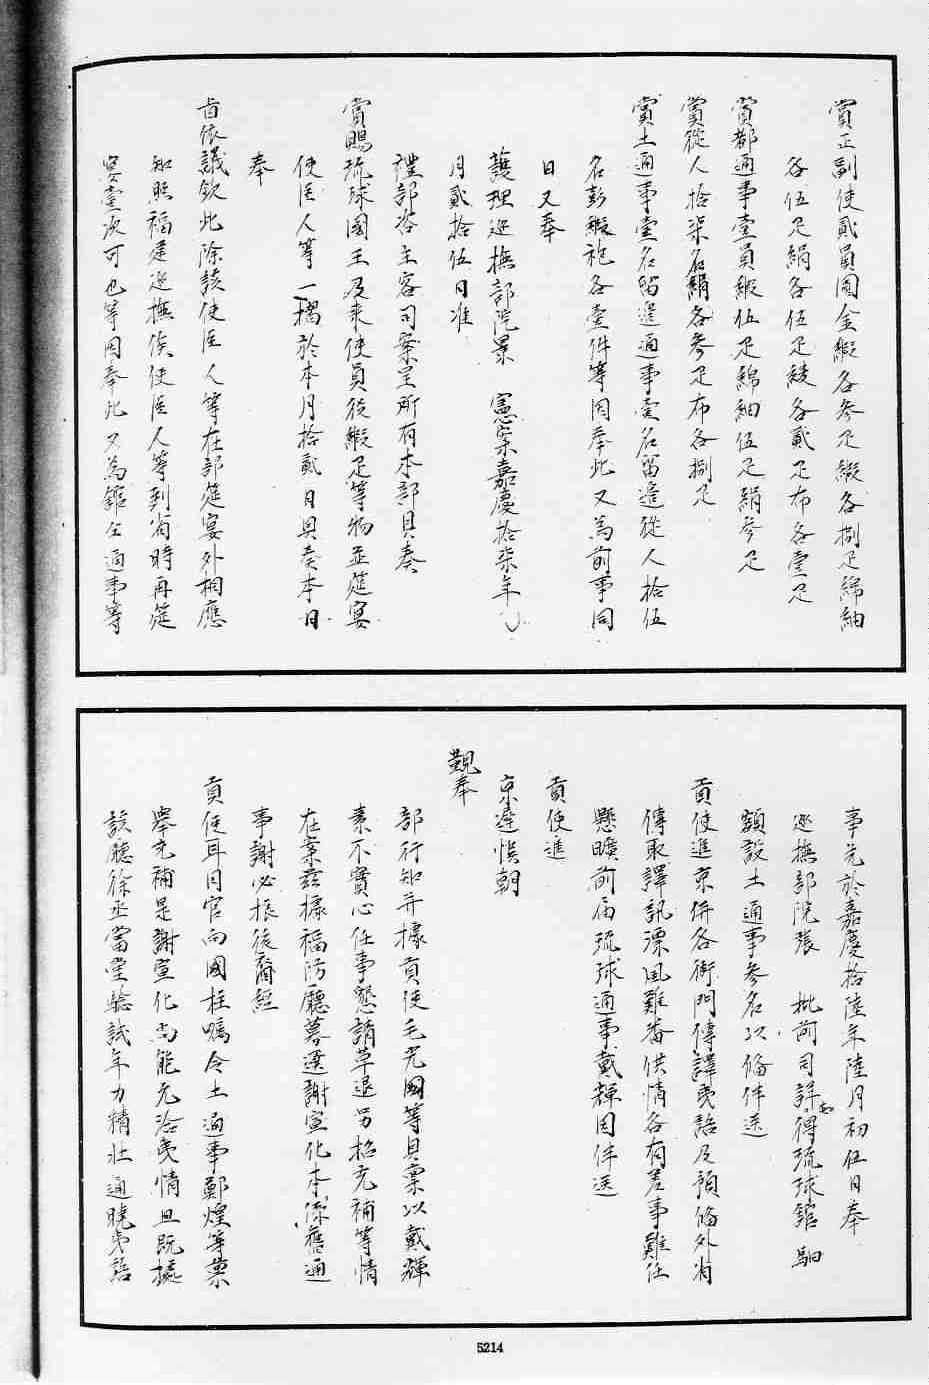 賞正副使貳員圓金緞各參疋緞各捌疋綿紬
各伍疋絹各伍疋綾各貳疋布各壹疋
賞都通事壹員緞伍疋綿紬伍疋絹參疋
賞從人拾柒名絹各參疋布各捌疋
賞土通事壹名留邊通事壹名留邊從人拾伍
名彭緞袍各壹件等因奉此又為前事同
日又奉
護理巡撫部院景 憲案嘉慶拾柒年
月貳拾伍日准
禮部咨主客司案呈所有本部具奏
賞賜琉球國王及来使員役緞疋等物並筵宴
使臣人等一摺於本月拾貳日具奏本日
奉
旨依議欽此除該使臣人等在部筵宴外相應
知照福建巡撫俟使臣人等到省時再筵
宴壹次可也等因奉此又為館仝通事等
事先於嘉慶拾陸年陸月初伍日奉
巡撫部院張 批前司詳得琉球館驛
額設土通事參名以俻伴送
貢使進京併各衙門傳譯夷語及預俻外省
傳取譯訊漂風難番供情各有差事難任
懸曠前届琉球通事戴輝因伴送
貢使進
京遲悮朝
覲奉
部行知并據貢使毛光國等具稟以戴輝
素不實心任事懇請革退另招充補等情
在案茲據福防廳募選謝宣化本係舊通
事謝必振後裔經
貢使耳目官向國柱囑令土通事鄭煌等稟
舉充補是謝宣化尚能允洽夷情且既據
該廳徐丞當堂驗試年力精壯通曉夷語
5214